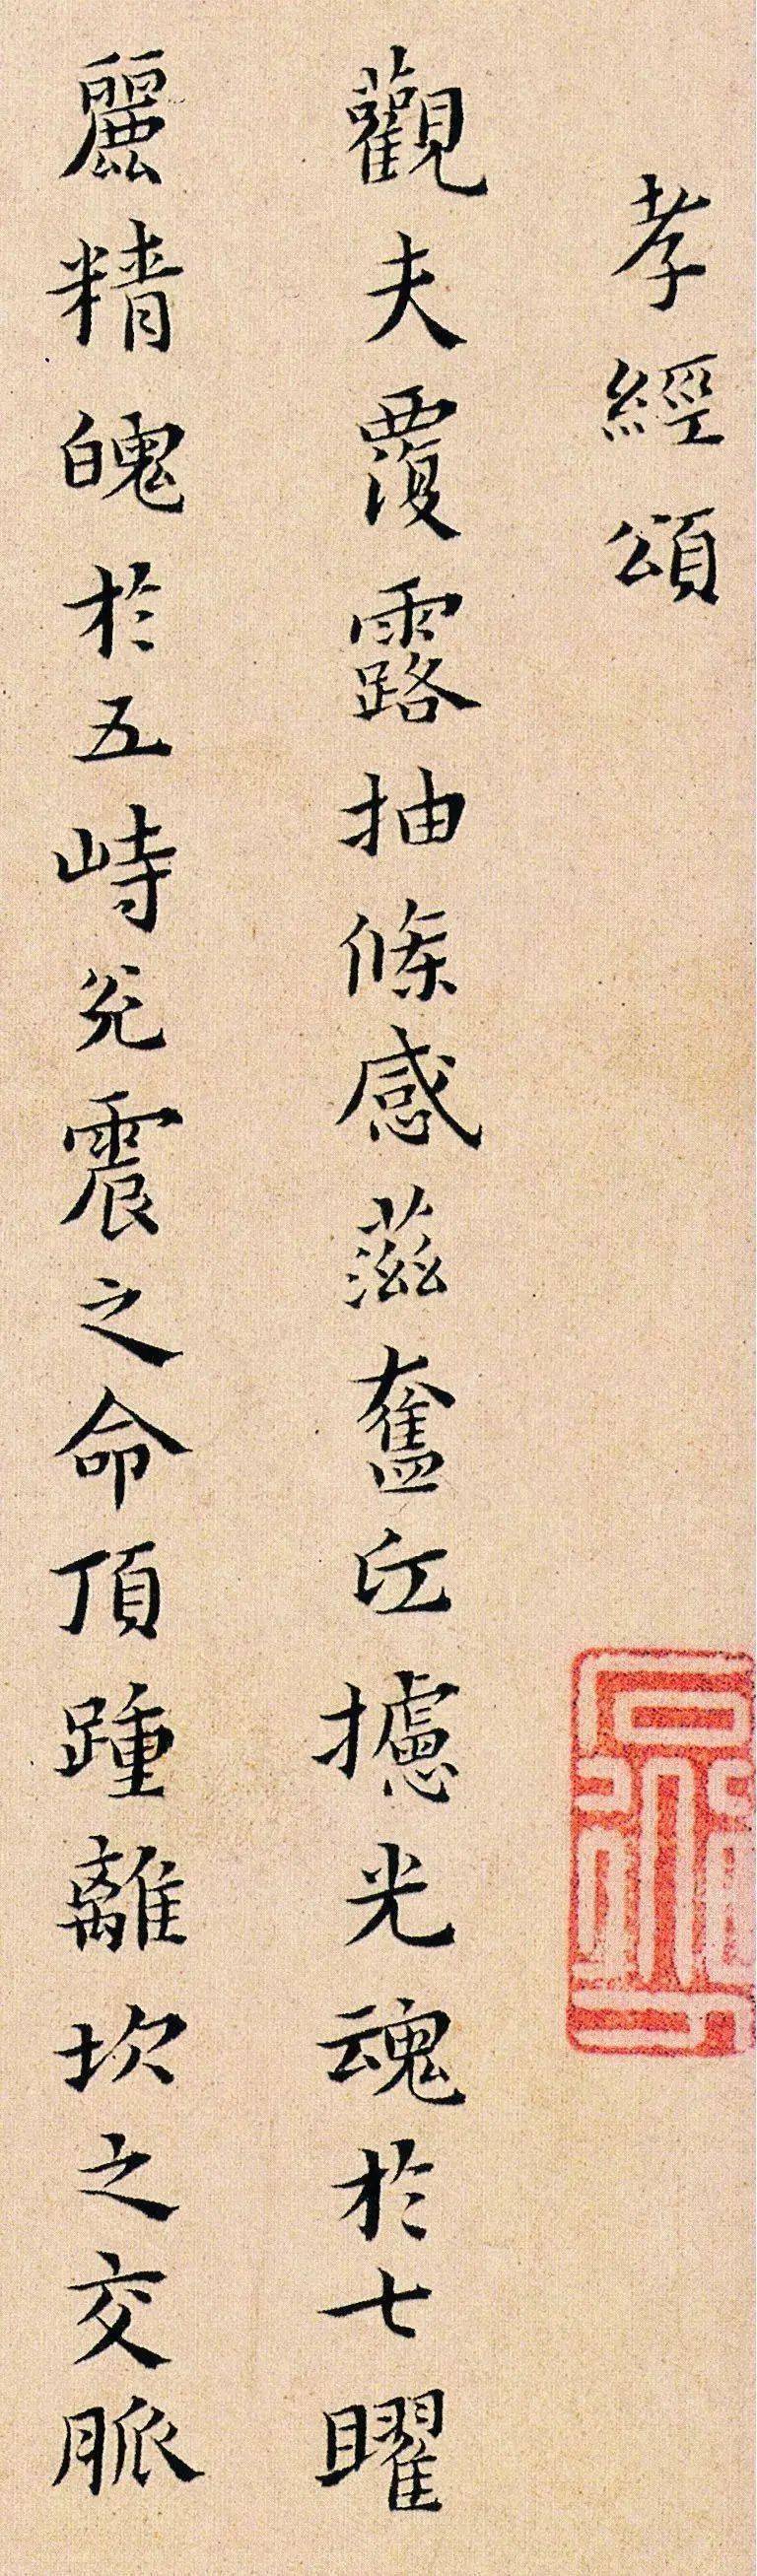 孝經頌
觀夫覆露抽條感滋奮丘攄光魂於七曜
麗精魄於五峙兊震之命頂踵離坎之交脈